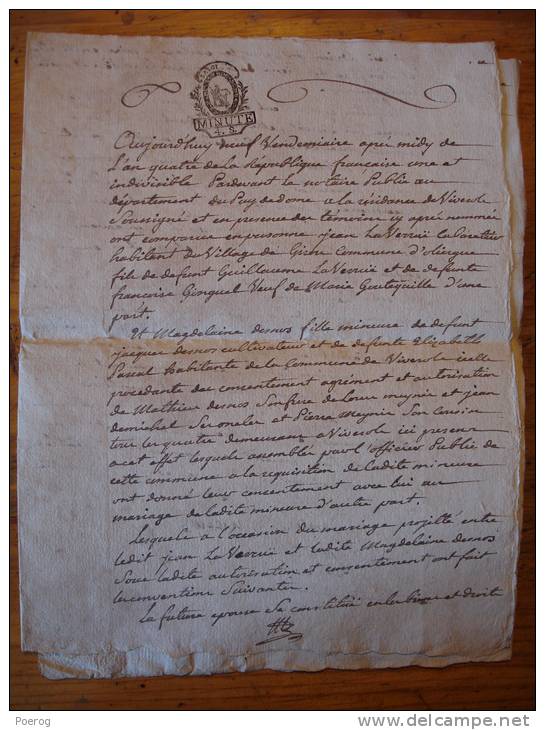 MINUTE
4. S.
Aujourdhuy neuf Vendemiaire après midy de
L'an quatre de la République française une et
indivisible Pardevant Le notaire Public au
département du Puy de dome a la résidance de Viverols
Soussigné et en presence des témoins cy après nommés
ont comparus en personne jean La Verrie
habitant du Village de Commune d'
fils de deffunt Guilleaume La Verrie et de deffunte
françoise Veuf de Marie d'une
part.
Et Magdelaine desnos fille mineure de deffunt
jacques desnos cultivateur et de deffunte Elizabeth
Pascal habitante de la Commune de Viverols icelle
procédante du consentement agrément et autorisation
de Mathieu desnos Son frere de Louis meynier et jean
demichel et Pierre Meynier Son cousin
tous les quatre demeurant a Viverols ici presens
a cet effet lesquels assemblés par l'officier Public de
cette commune a la requisition de ladite mineure
ont donné leur consentement avec lui au
mariage de ladite mineure d'autre part.
Lesquels a l'occasion du mariage projetté entre
ledit jean La Verrie et ladite Magdelaine desnos
Sous ladite autorisation et consentement ont fait
les conventions Suivantes.
La future epouse Se constitue en les biens et droits
Poerog
delcampe.net